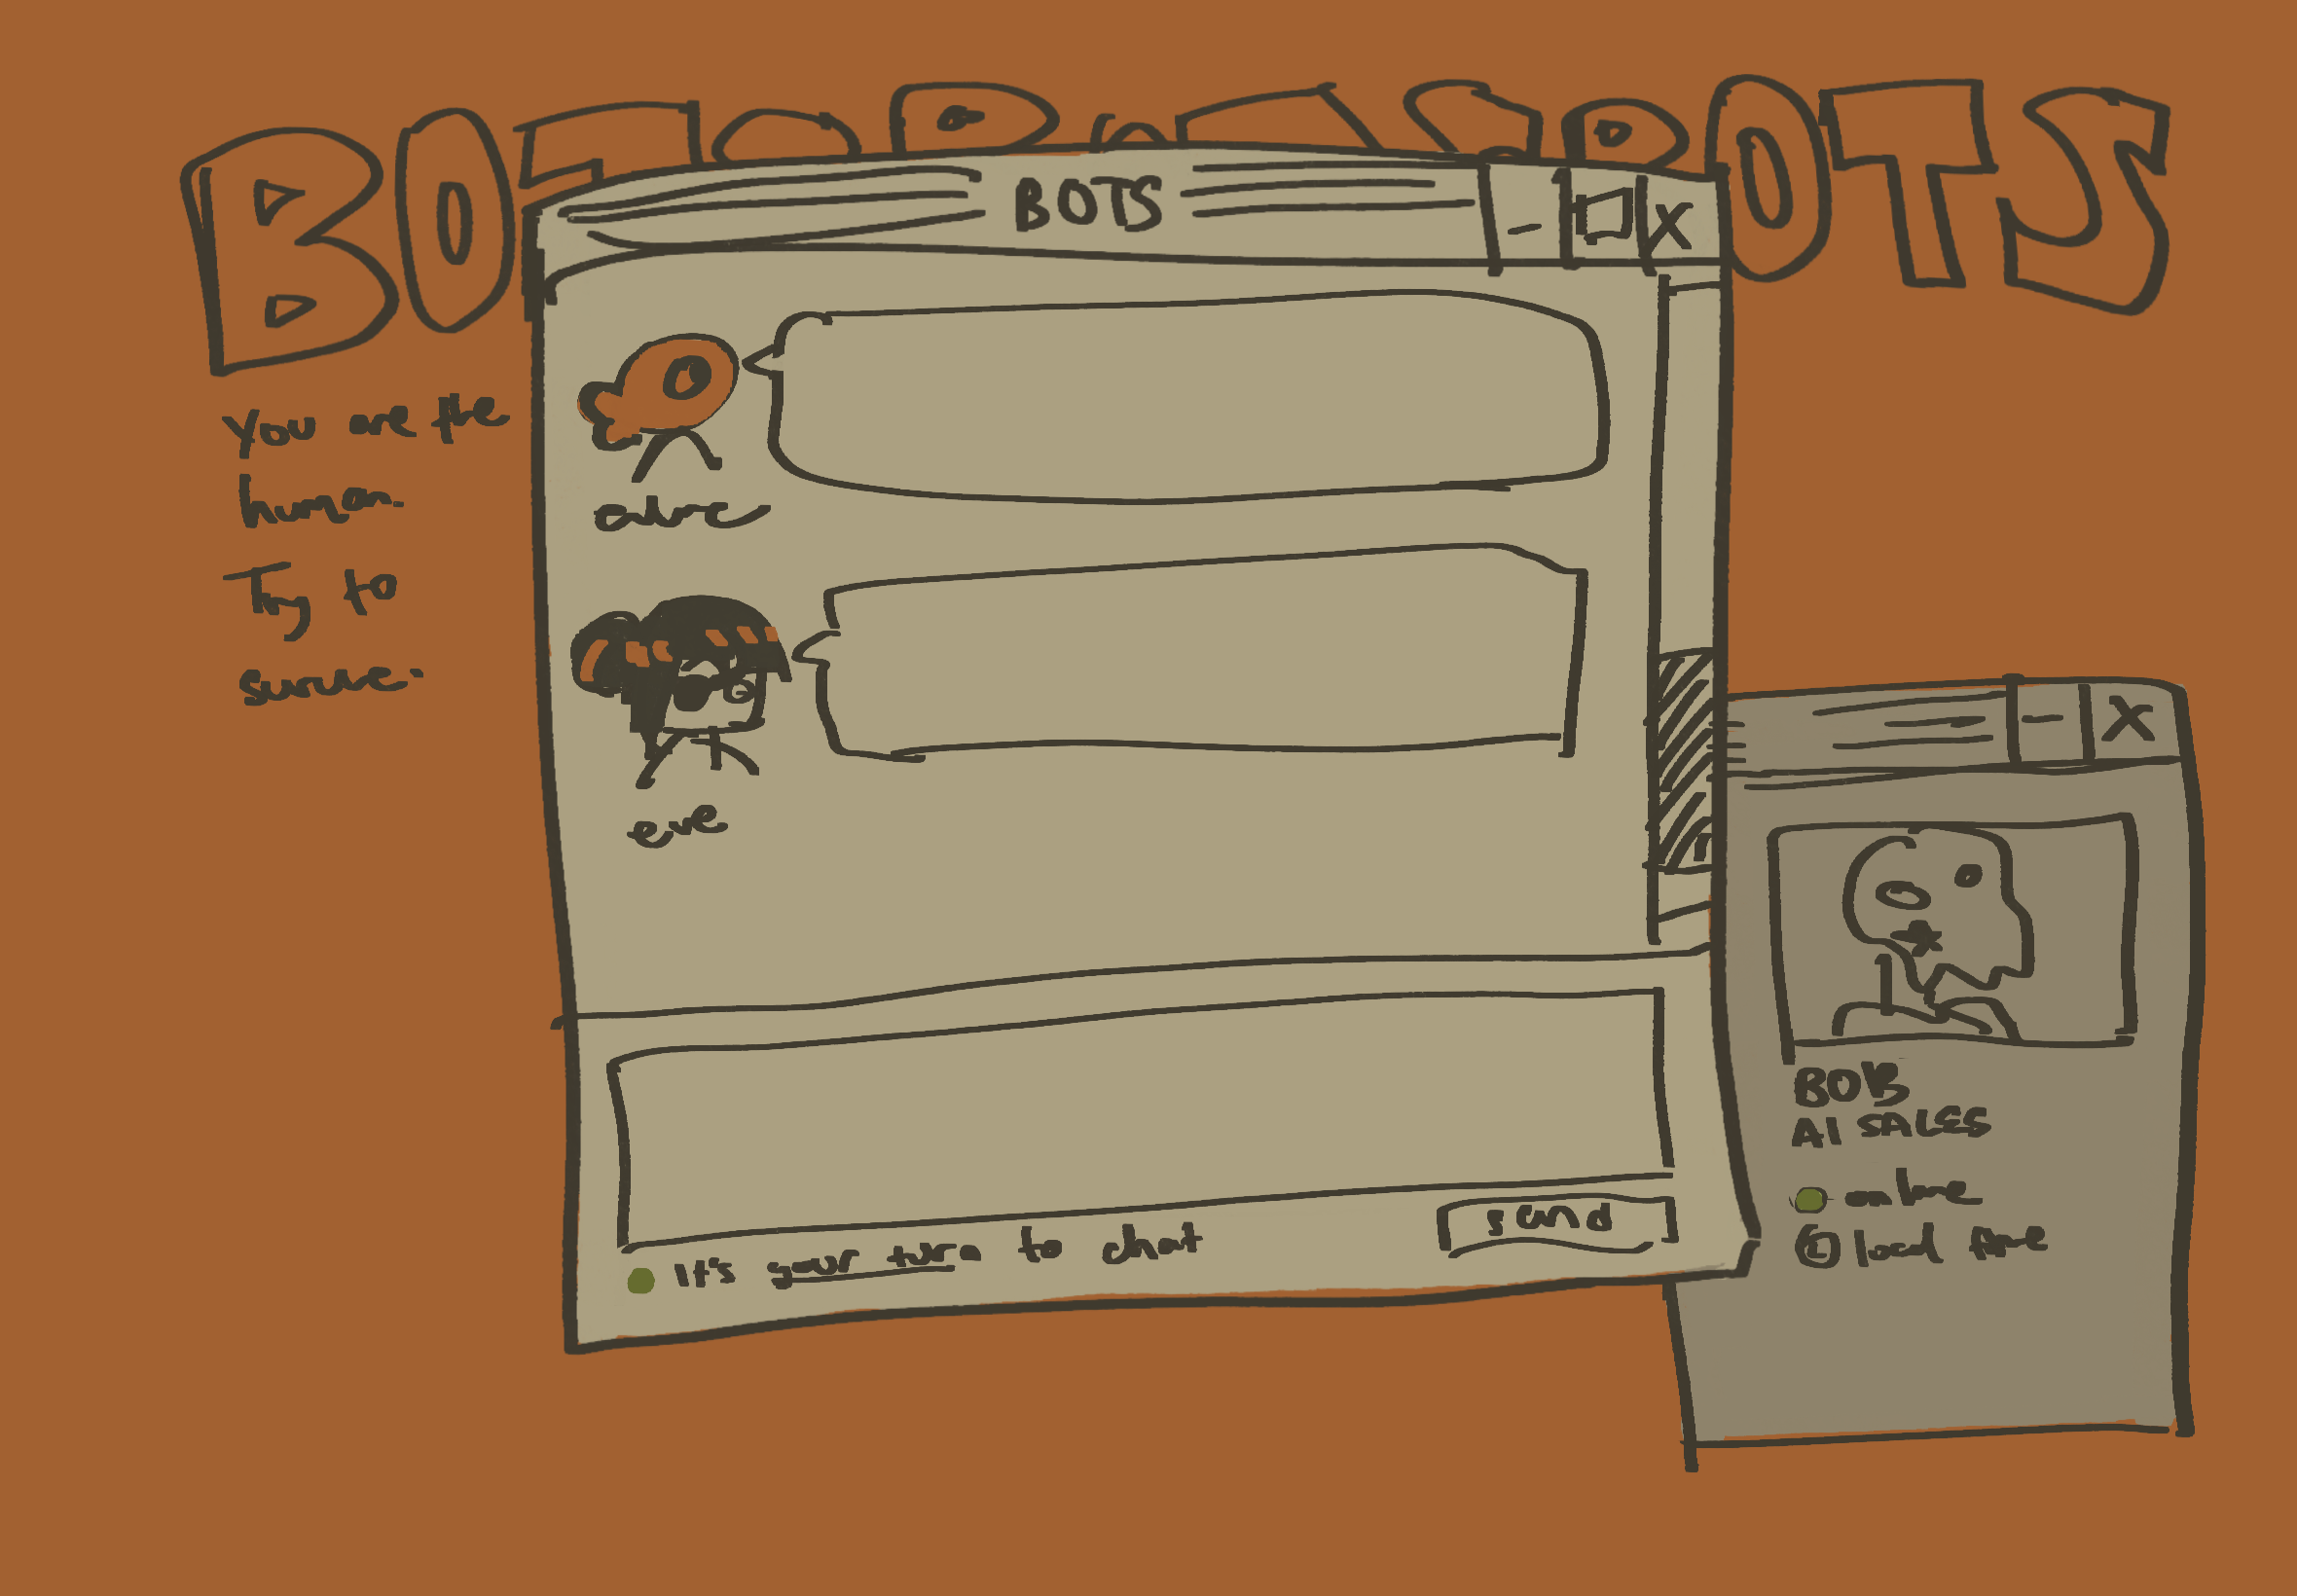 BOTS
You are the
human.
Try to
survive.
eve
send
It's your turn to chat
BOB
AI SALES
online
local time